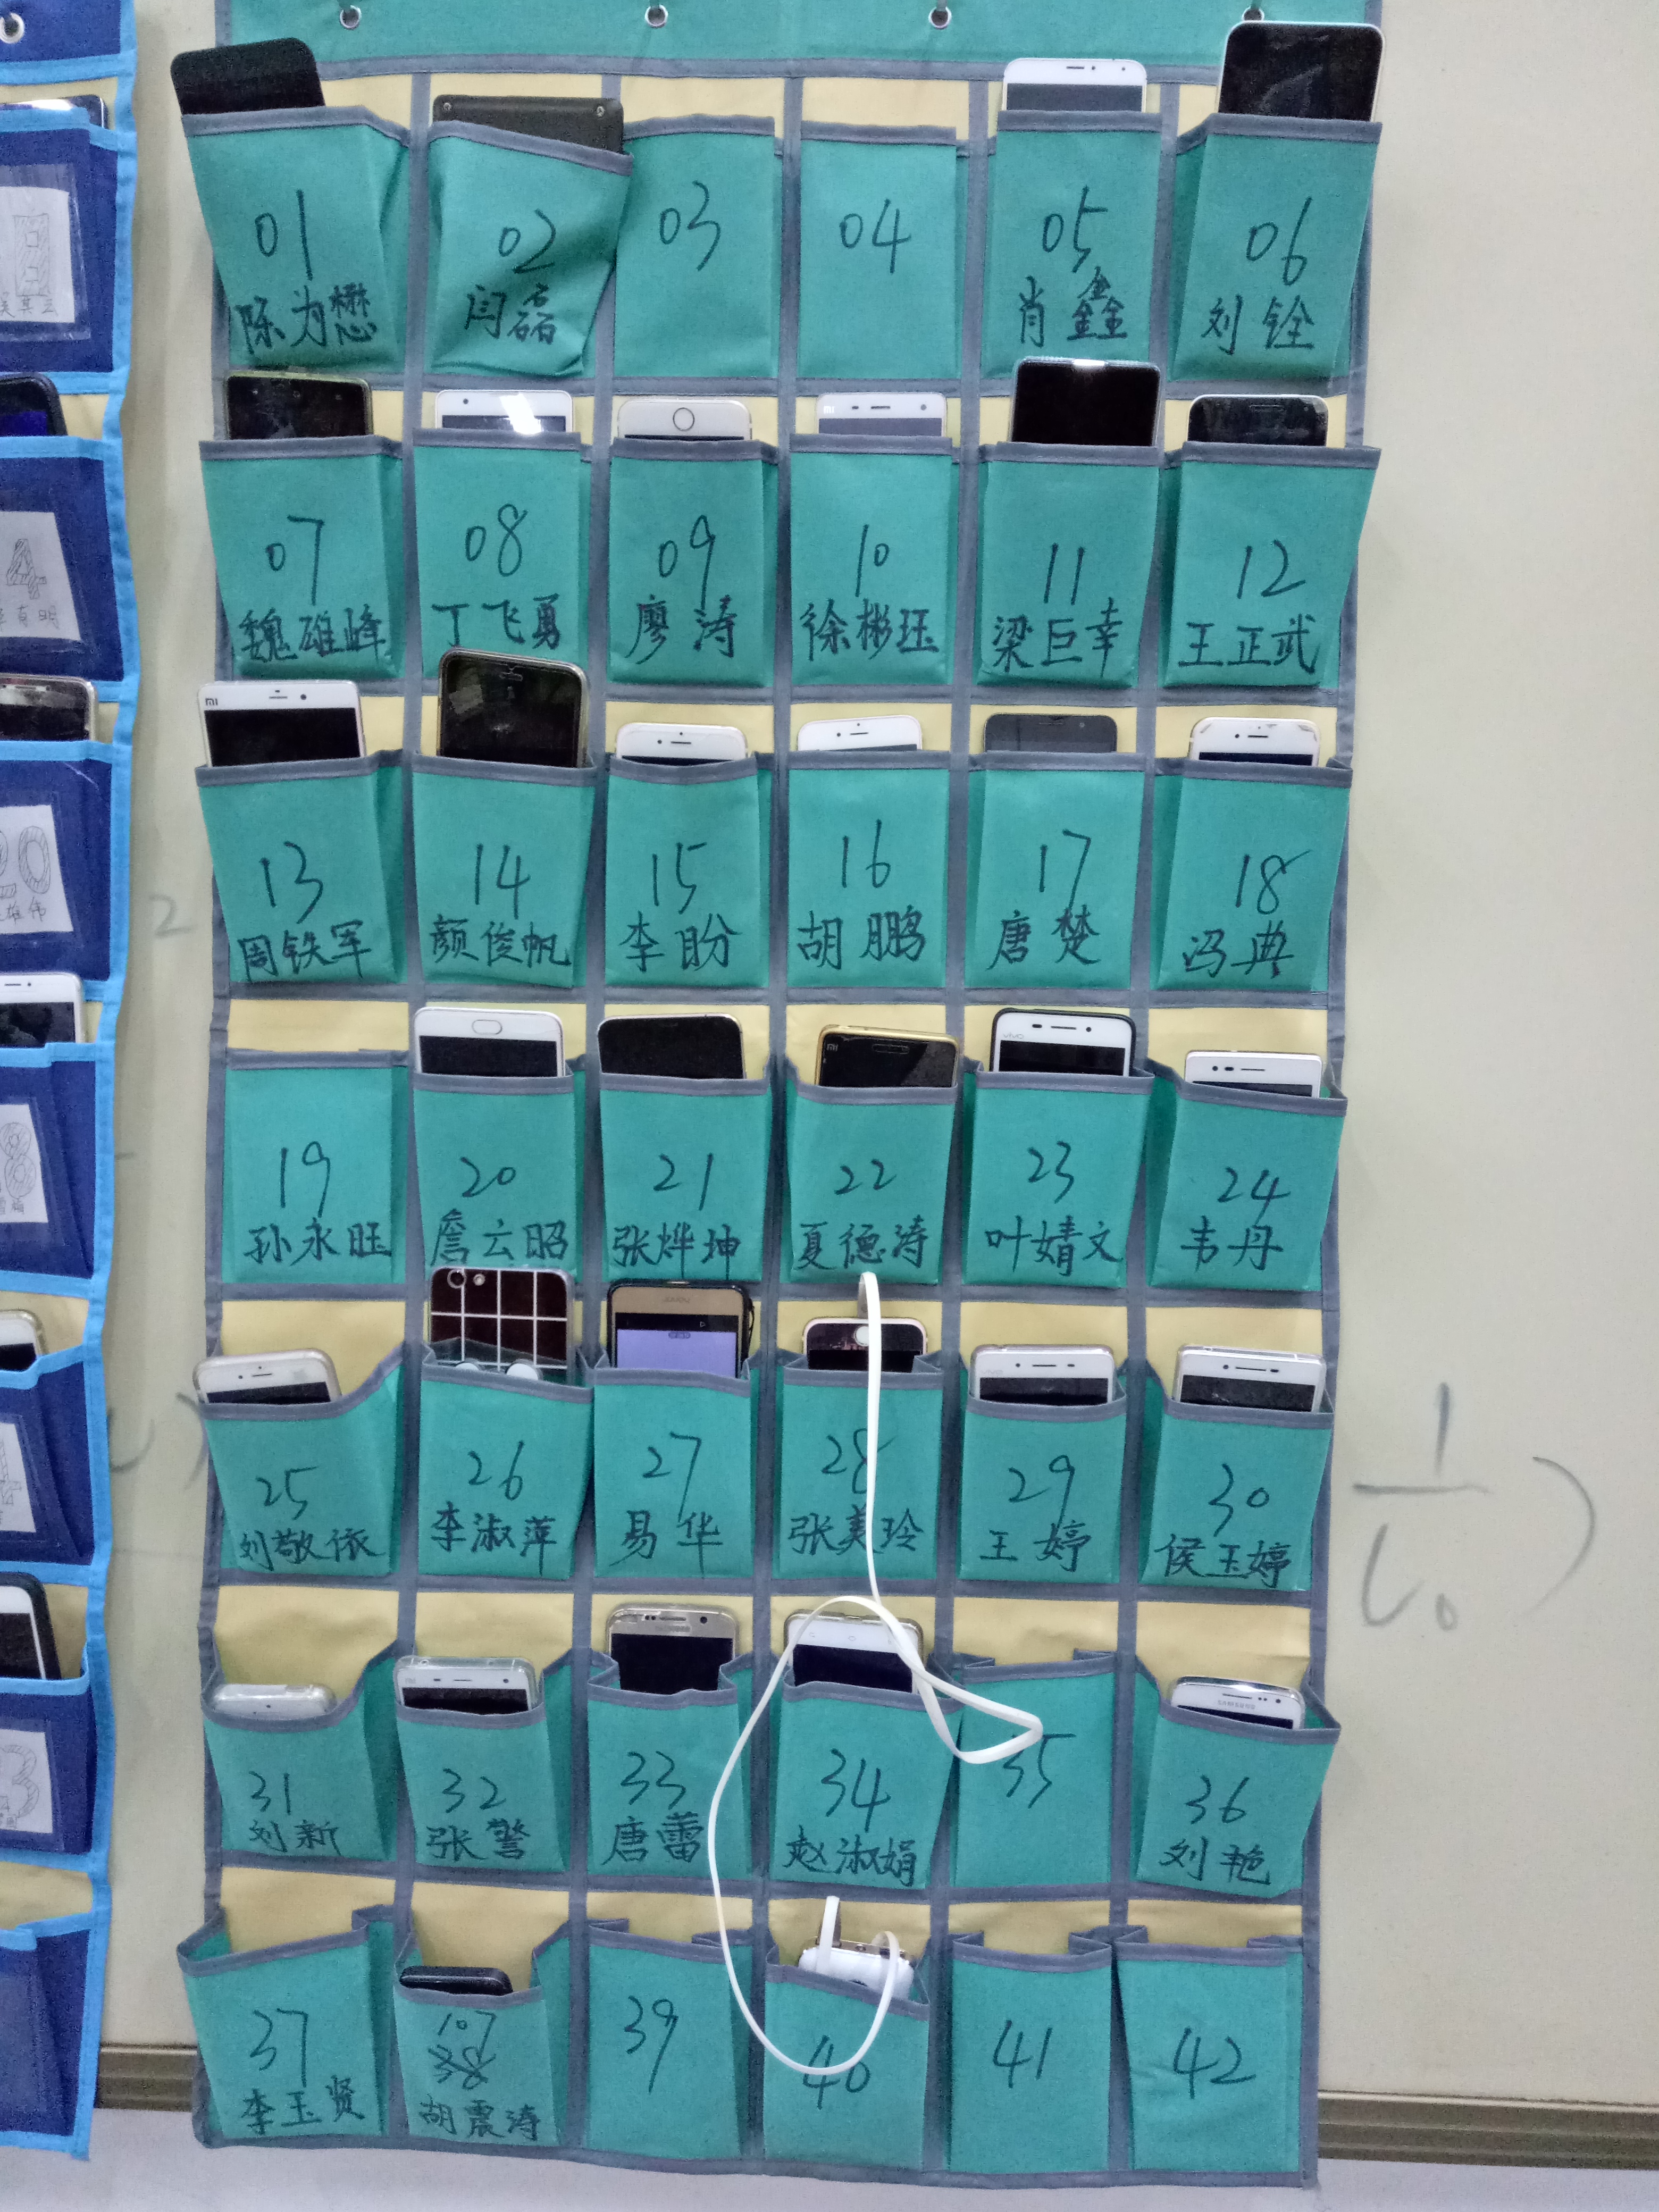 01
陈为懋
02
闫磊
03
04
05
肖鑫
06
刘铨
07
魏雄峰
08
丁飞勇
09
廖涛
10
徐彬珏
11
梁巨幸
12
王正武
13
周铁军
14
颜俊帆
15
李盼
16
胡鹏
17
唐楚
18
冯典
19
孙永旺
20
詹云昭
21
张烨坤
22
夏德涛
23
叶婧文
24
韦丹
25
刘敬依
26
李淑萍
27
易华
28
张美玲
29
王婷
30
侯玉婷
31
刘新
32
张警
33
唐蕾
34
赵淑娟
35
36
刘艳
37
李玉贤
107
38
胡震涛
39
40
41
42
mi
mi
mi
vivo
SAMSUNG
SAMSUNG
4
20
2
1